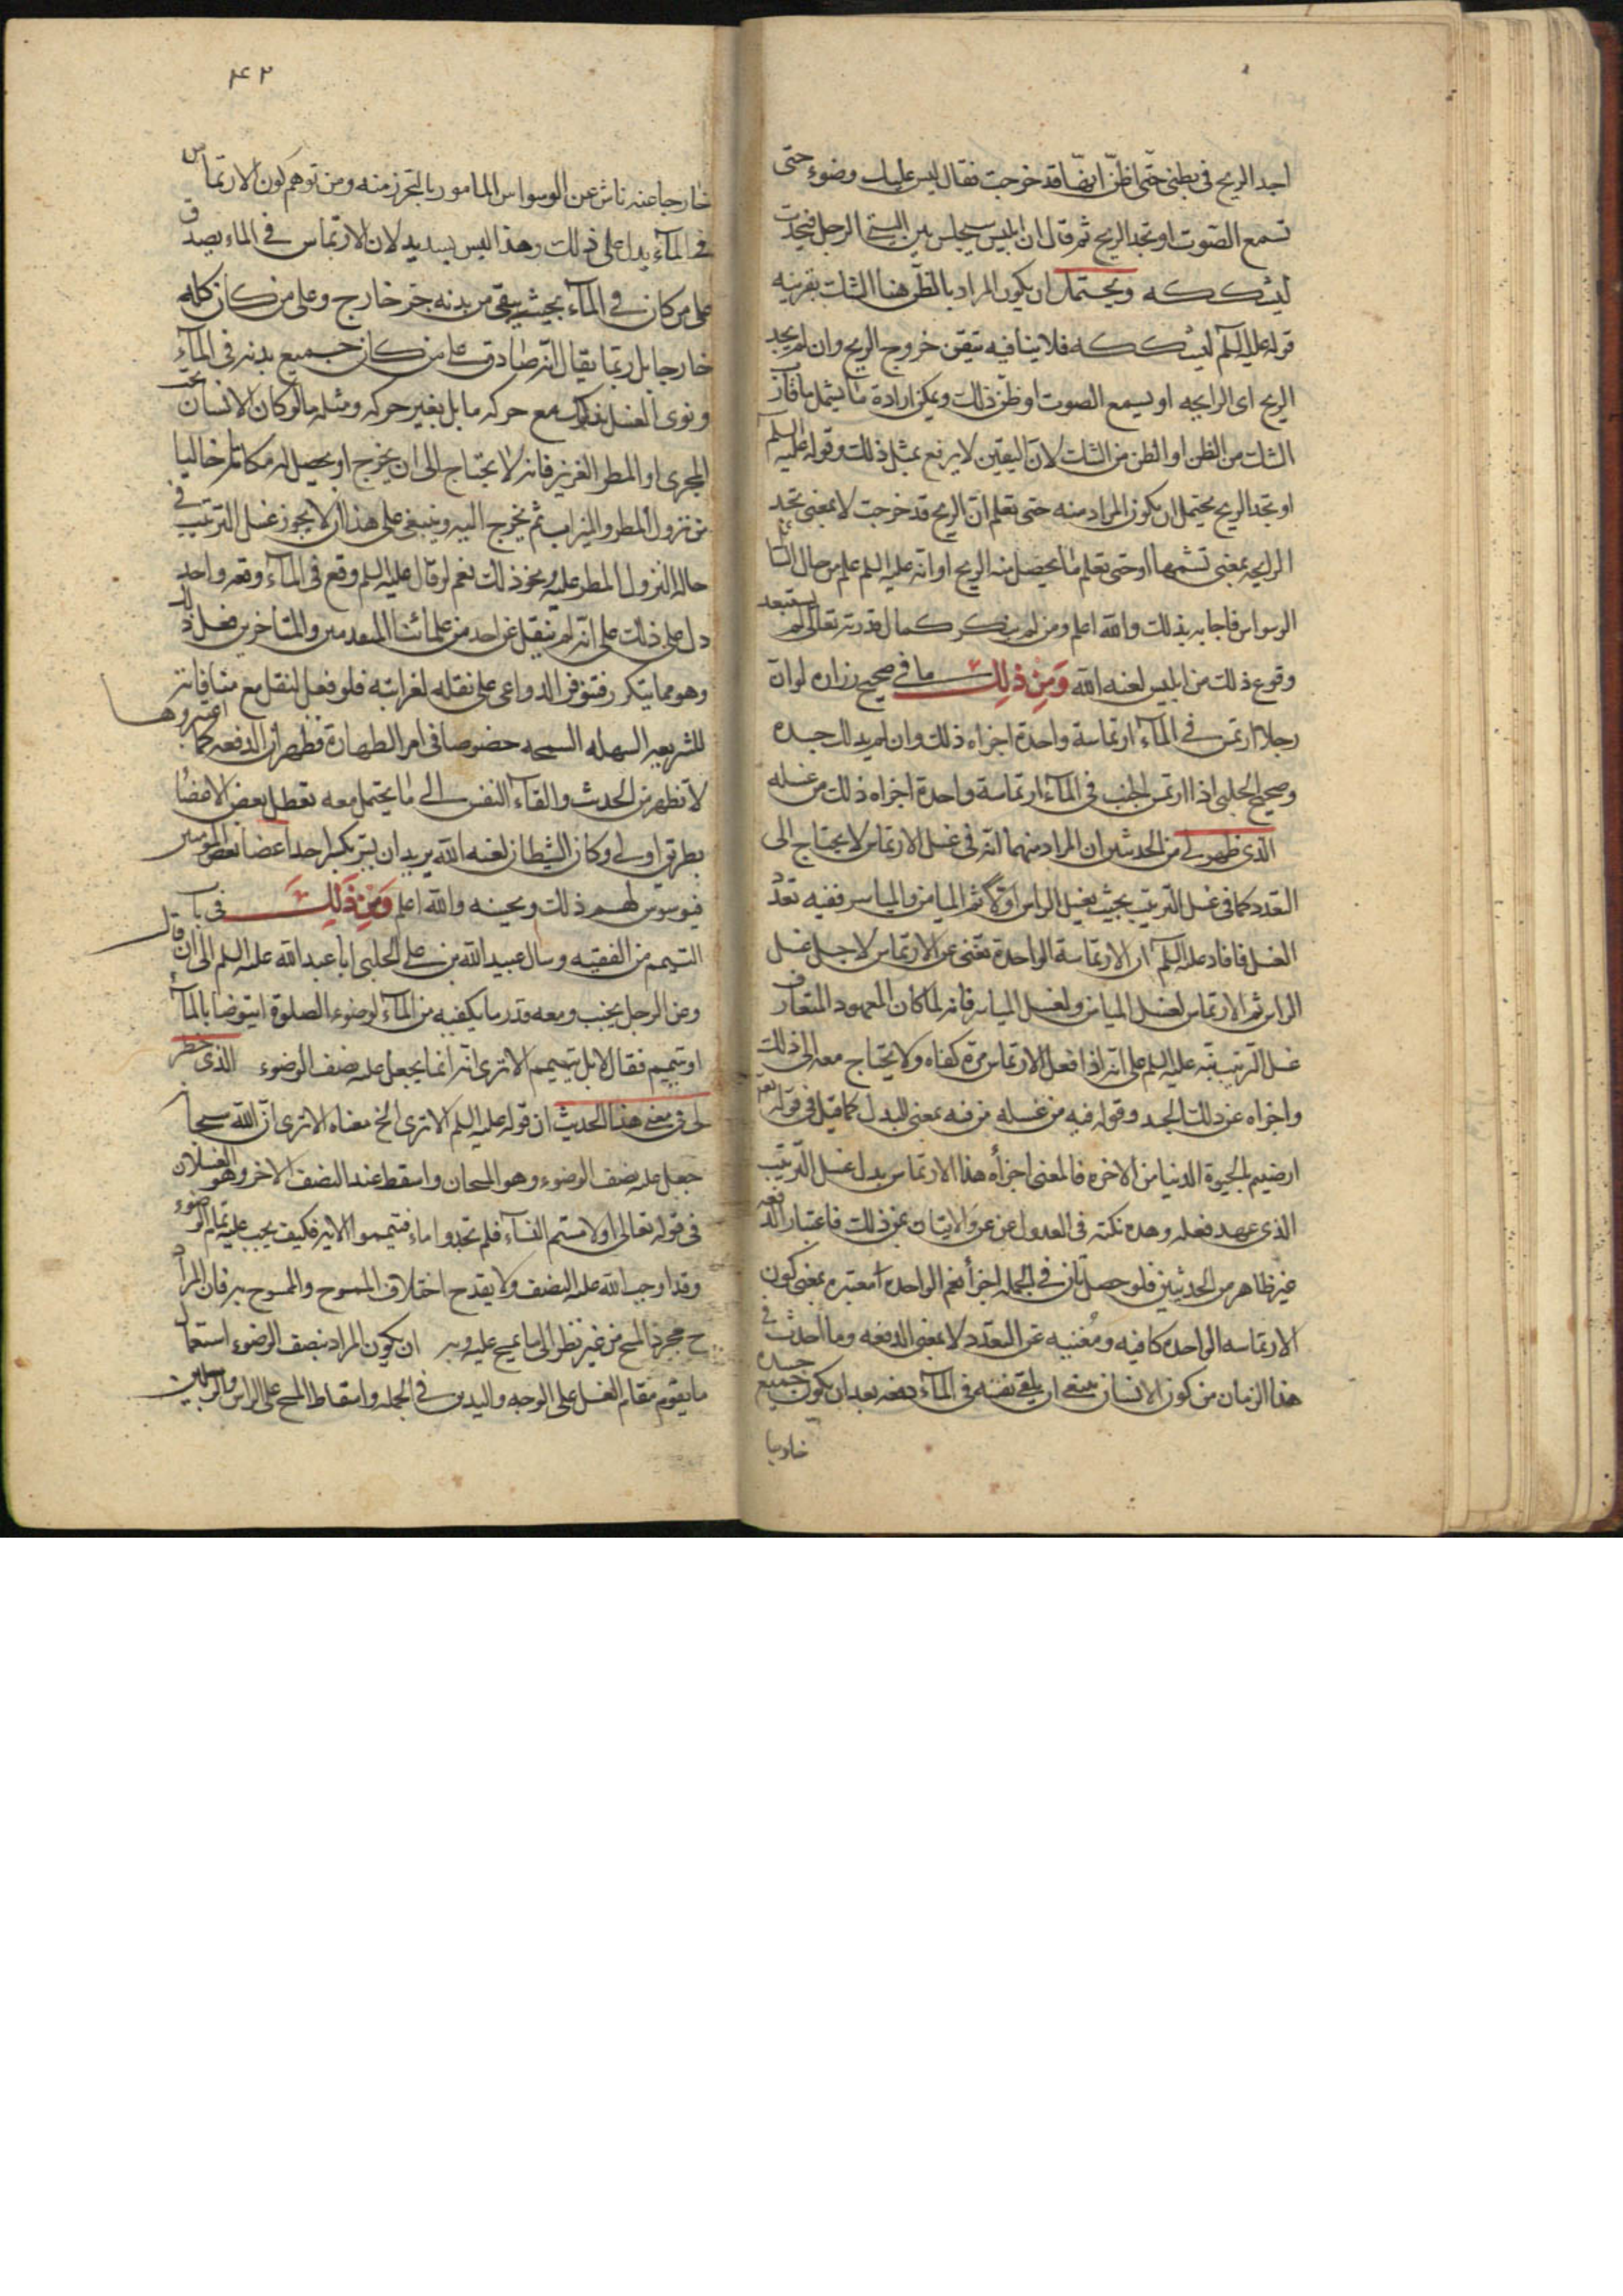 اجد الريح فى بطنى حتّى اظنّ انها قد خرجت فقال ليس عليك وضوء حتى
تسمع الصوت او تجد الريح ثم قال ان ابليس يجلس بين اليتى الرجل فيحدث
ليشككه ويحتمل ان يكون المراد بالظن هنا الشك بقرينه
قوله عليه السلم ليشككه فلا ينافيه تيقن خروج الريح وان لم يجد
الريح اى الرايحه او يسمع الصوت او ظن ذلك ويمكن ارادة ما يشمل ما قارب
الشك من الظن او الظن من الشك لان اليقين لا يرفع بمثل ذلك وقوله عليه السلم
او تجد الريح يحتمل ان يكون المراد منه حتى تعلم ان الريح قد خرجت لا بمعنى تجد
الرايحه بمعنى تشمها او حتى تعلم ما يحصل منه الريح او انه عليه السلم علم من حال السائل
الوسواس فاجابه بذلك والله اعلم ومن لم ينكر كمال قدرته تعالى لم يستبعد
وقوع ذلك من ابليس لعنه الله وَمِنْ ذلِكَ ما فى صحيح زراره لو ان
رجلا ارتمس فى الماء ارتماسة واحدة اجزاه ذلك وان لم يدلك جسده
وصحيح الحلبى اذا ارتمس الجنب فى الماء ارتماسة واحدة اجزاه ذلك من غسله
الذى ظهر لى من الحديثين ان المراد منهما انه فى غسل الارتماس لا يحتاج الى
التعدد كما فى غسل الترتيب بحيث يغسل الراس اولا ثم الميامن والمياسر ففيه تعدد
الغسل فافاد عليه السلم ان الارتماسة الواحدة تغنى عن الارتماس لاجل غسل
الراس ثم الارتماس لغسل الميامن ولغسل المياسر فانه لما كان المعهود المتعارف
غسل الترتيب نبّه عليه السلم على انه اذا فعل الارتماس مرة كفاه ولا يحتاج معه الى ذلك
واجزاه عن دلك الجسد وقوله فيه من غسله من فيه بمعنى البدل كما قيل فى قوله تعالى
ارضيتم بالحيوة الدنيا من الاخره فالمعنى اجزأه هذا الارتماس بدل غسل الترتيب
الذى عهد فعله وهده نكته فى العدول عن عن والاتيان بمن ذلك فاعتبار الدفعه
غير ظاهر من الحديثين فلو حصل تان فى الجمله اجزأ نعم الواحده معتبره بمعنى كون
الارتماسه الواحده كافيه ومغنيه عن التعدد لا بمعنى الدفعه وما احدث فى
هذا الزمان من كون الانسان ينبغى ان يلقى نفسه فى الماء دفعه بعد ان يكون جميع جسده
خارجا
۴۲
خارجا عنه ناش عن الوسواس المامور بالتحرز منه ومن توهم كون الارتماس
فى الماء يدل على ذلك وهذا ليس بسديد لان الارتماس فى الماء يصدق
على من كان فى الماء بحيث يبقى من بدنه جزء خارج وعلى من كان كله
خارجا بل ربما يقال انه صادق على من كان جميع بدنه فى الماء
ونوى الغسل بذلك مع حركه ما بل بغير حركه ومثله ما لو كان الانسان تحت
المجرى او المطر الغزير فانه لا يحتاج الى ان يخرج او يحصل له مكانا خاليا
من نزول المطر والميزاب ثم يخرج اليه وينبغى على هذا ان لا يجوز غسل الترتيب فى
حالة النزول المطر عليه ونحو ذلك نعم لو قال عليه السلم وقع فى الماء وقعه واحده
دل على ذلك على انه لم ينقل عن احد من علمائنا المتقدمين والمتاخرين فعل ذلك
وهو مما يتكرر فتتوفر الدواعى على نقله لغرابته فلو فعل لنقل مع منافاته
للشريعه السهله السمحه خصوصا فى امر الطهارة فظهر ان الدفعه كما اعتبروها
لا تظهر من الحديث والقاء النفس الى ما يحتمل معه تعطل بعض الاعضاء
بطريق اولى وكان الشيطان لعنه الله يريد ان يتكسر احد اعضاء بعض المومنين
فيوسوس لهم ذلك ويحسنه والله اعلم وَمِنْ ذَلِكَ فى باب
التيمم من الفقيه وسال عبيد الله بن على الحلبى ابا عبد الله عليه السلم الى ان قال
وعن الرجل يجنب ومعه قدر ما يكفيه من الماء لوضوء الصلوة ايتوضا بالماء
او يتيمم فقال لا بل يتيمم الا ترى انه انما يجعل عليه نصف الوضوء الذى خطر
لى فى معنى هذا الحديث ان قوله عليه السلم الا ترى الخ معناه الا ترى ان الله سبحانه
جعل عليه نصف الوضوء وهو المسحان واسقط عند النصف الاخر وهو الغسلان
فى قوله تعالى او لامستم النساء فلم تجدوا ماء فتيمموا الايه فكيف يجب عليه تمام الوضوء
وقد اوجب الله عليه النصف ولا يقدح اختلاف الممسوح والممسوح به فان المراد
ح مجرد المسح من غير نظر الى ما يمسح عليه وبه ان يكون المراد بنصف الوضوء استعمال
ما يقوم مقام الغسل على الوجه واليدين فى الجمله واسقاط المسح على الراس والرجلين